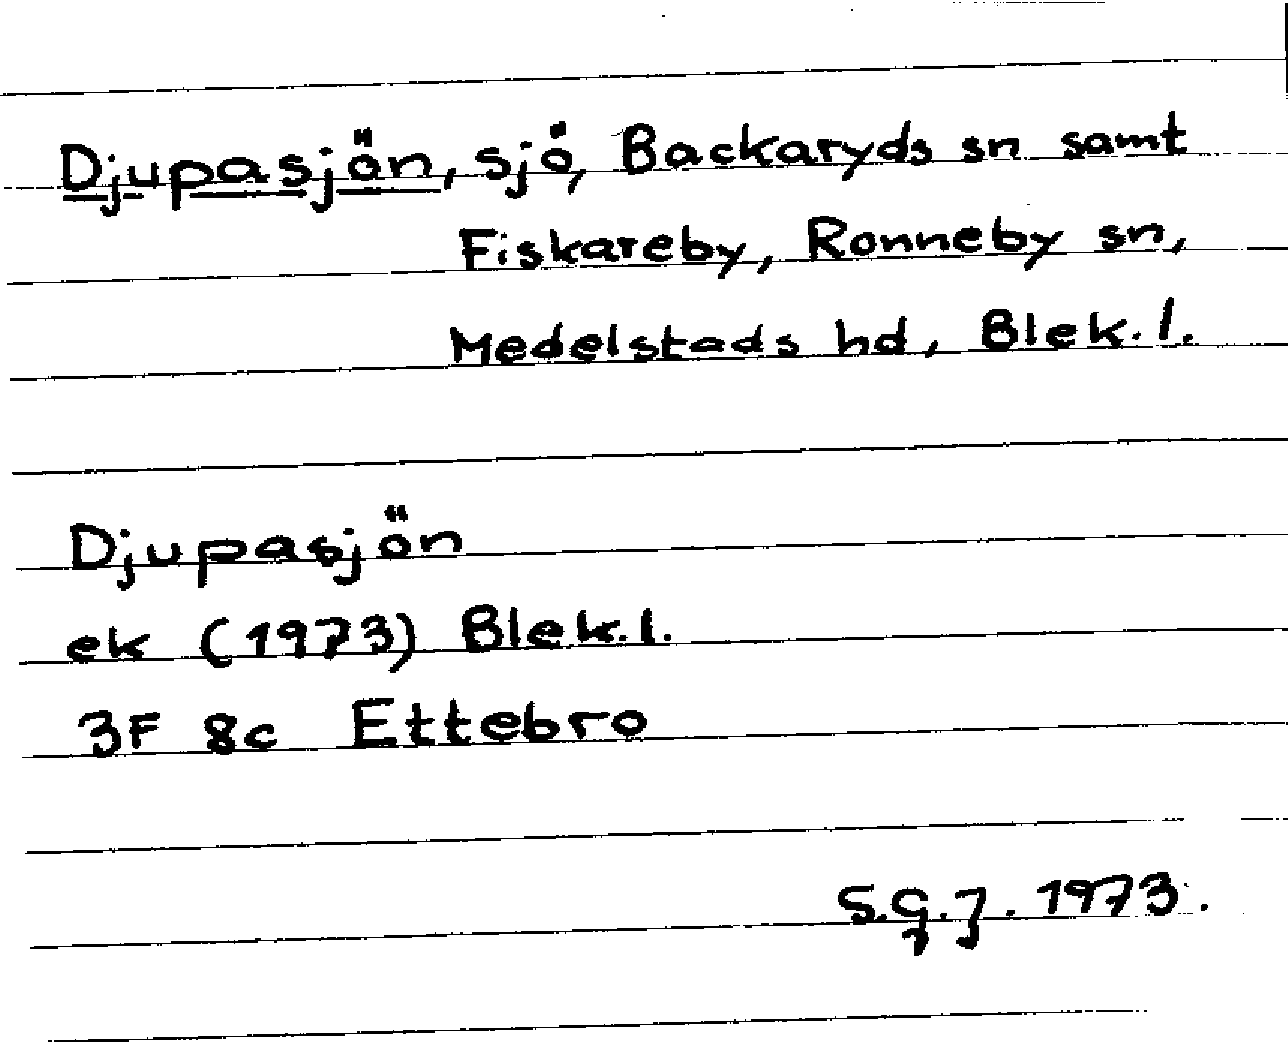 Djupasjön, sjö, Backaryds sn samt
Fiskareby, Ronneby sn,
Medelstads hd, Blek. l.
Djupasjön
ek (1973) Blek. l.
3F 8c Ettebro
S.G.J. 1973.